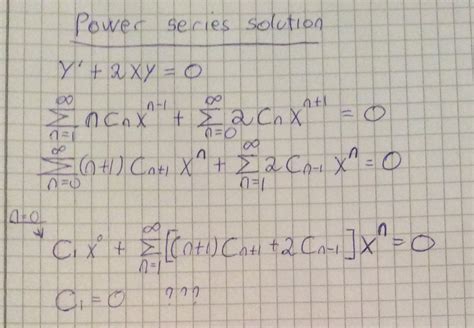 Power series solution
Y' + 2XY = 0
∞ ∑ n=1 nCₙXⁿ⁻¹ + ∞ ∑ n=0 2CₙXⁿ⁺¹ = 0
∞ ∑ n=0 (n+1)Cₙ₊₁Xⁿ + ∞ ∑ n=1 2Cₙ₋₁Xⁿ = 0
n=0
C₁X⁰ + ∞ ∑ n=1 [(n+1)Cₙ₊₁ + 2Cₙ₋₁]Xⁿ = 0
C₁ = 0 ???